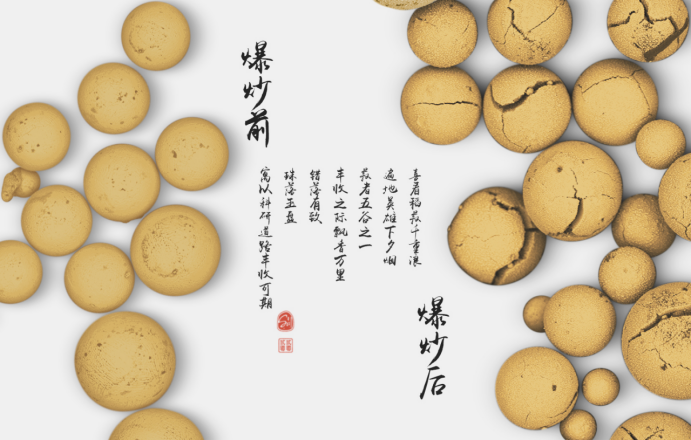 爆炒前
喜看稻菽千重浪
遍地英雄下夕烟
菽者五谷之一
丰收之际飘香万里
错落有致
珠落玉盘
寓以科研道路丰收可期
爆炒后